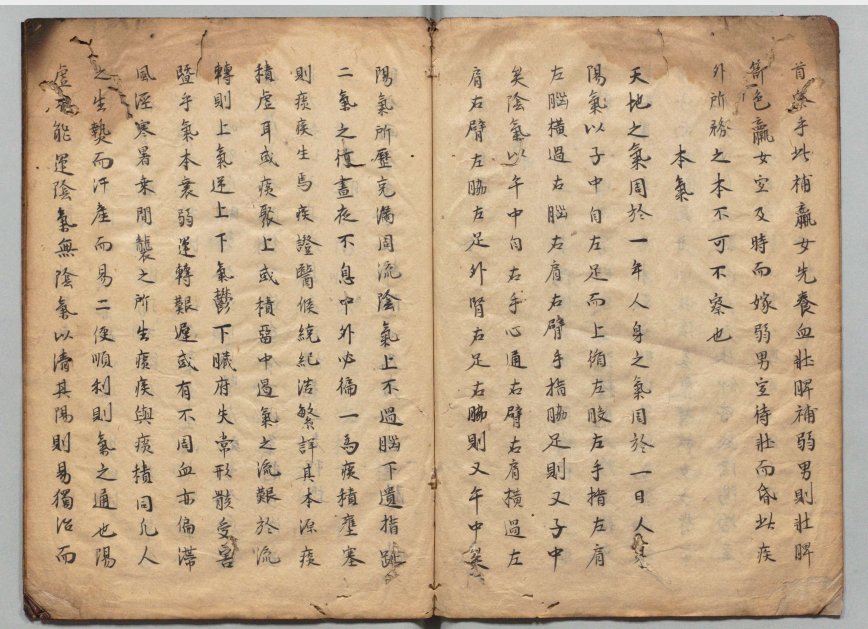 首參手此補羸女先養血壯脾補弱男則壯脾
節色羸女宜及時而嫁弱男宜待壯而昏此疾
外所務之本不可不察也
本氣
天地之氣周於一年人身之氣周於一日人身
陽氣以子中自左足而上循左股左手指左肩
左腦橫過右腦右肩右臂手指脇足則又子中
矣陰氣以午中自右手心通右臂右肩橫過左
肩右臂左脇左足外腎右足右脇則又午中矣
陽氣所歷充滿周流陰氣上不過腦下遺指趾
二氣之行晝夜不息中外必徧一為痰積壅塞
則痰疾生焉疾證醫候統紀浩繁詳其本源痰
積虛耳或痰聚上或積留中遏氣之流艱於流
轉則上氣逆上下氣鬱下臟府失常形骸受害
暨乎氣本衰弱運轉艱遲或有不周血亦偏滯
風溼寒暑乘間襲之所生痰疾與痰積同凡人
之生熱而汗產而易二便順利則氣之通也陽
虛能運陰氣無陰氣以清其陽則易獨治而